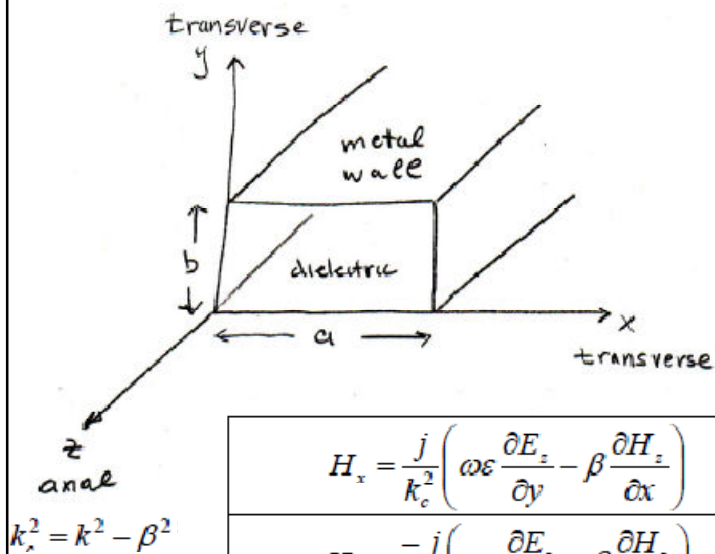 transverse
y
metal
wall
b
dielectric
a
x
transverse
z
axial
H_x = \frac{j}{k_c^2}\left(\omega\varepsilon\frac{\partial E_z}{\partial y} - \beta\frac{\partial H_z}{\partial x}\right)
k_c^2 = k^2 - \beta^2